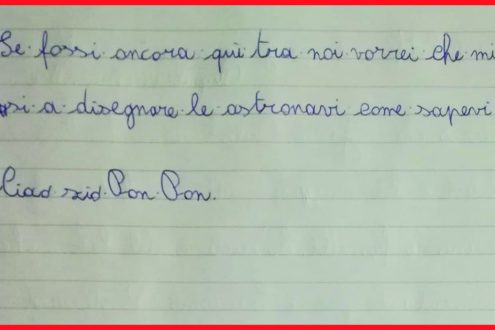 Se fossi ancora qui tra noi vorrei che mi
si a disegnare le astronavi come sapevi
Ciao zio Pon Pon.